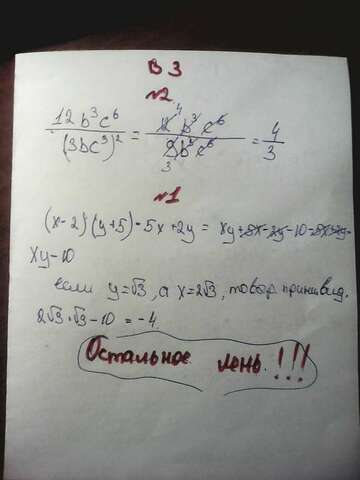 В 3
№2
12b³c⁶/(3bc³)² = 12⁴b³c⁶/9₃b²c⁶ = 4/3
№1
(x-2)(y+5)-5x+2y = xy+5x-2y-10-5x+2y
xy-10
если y=√3, а x=2√3, то выр. примет вид.
2√3·√3-10=-4.
Остальное лень!!!